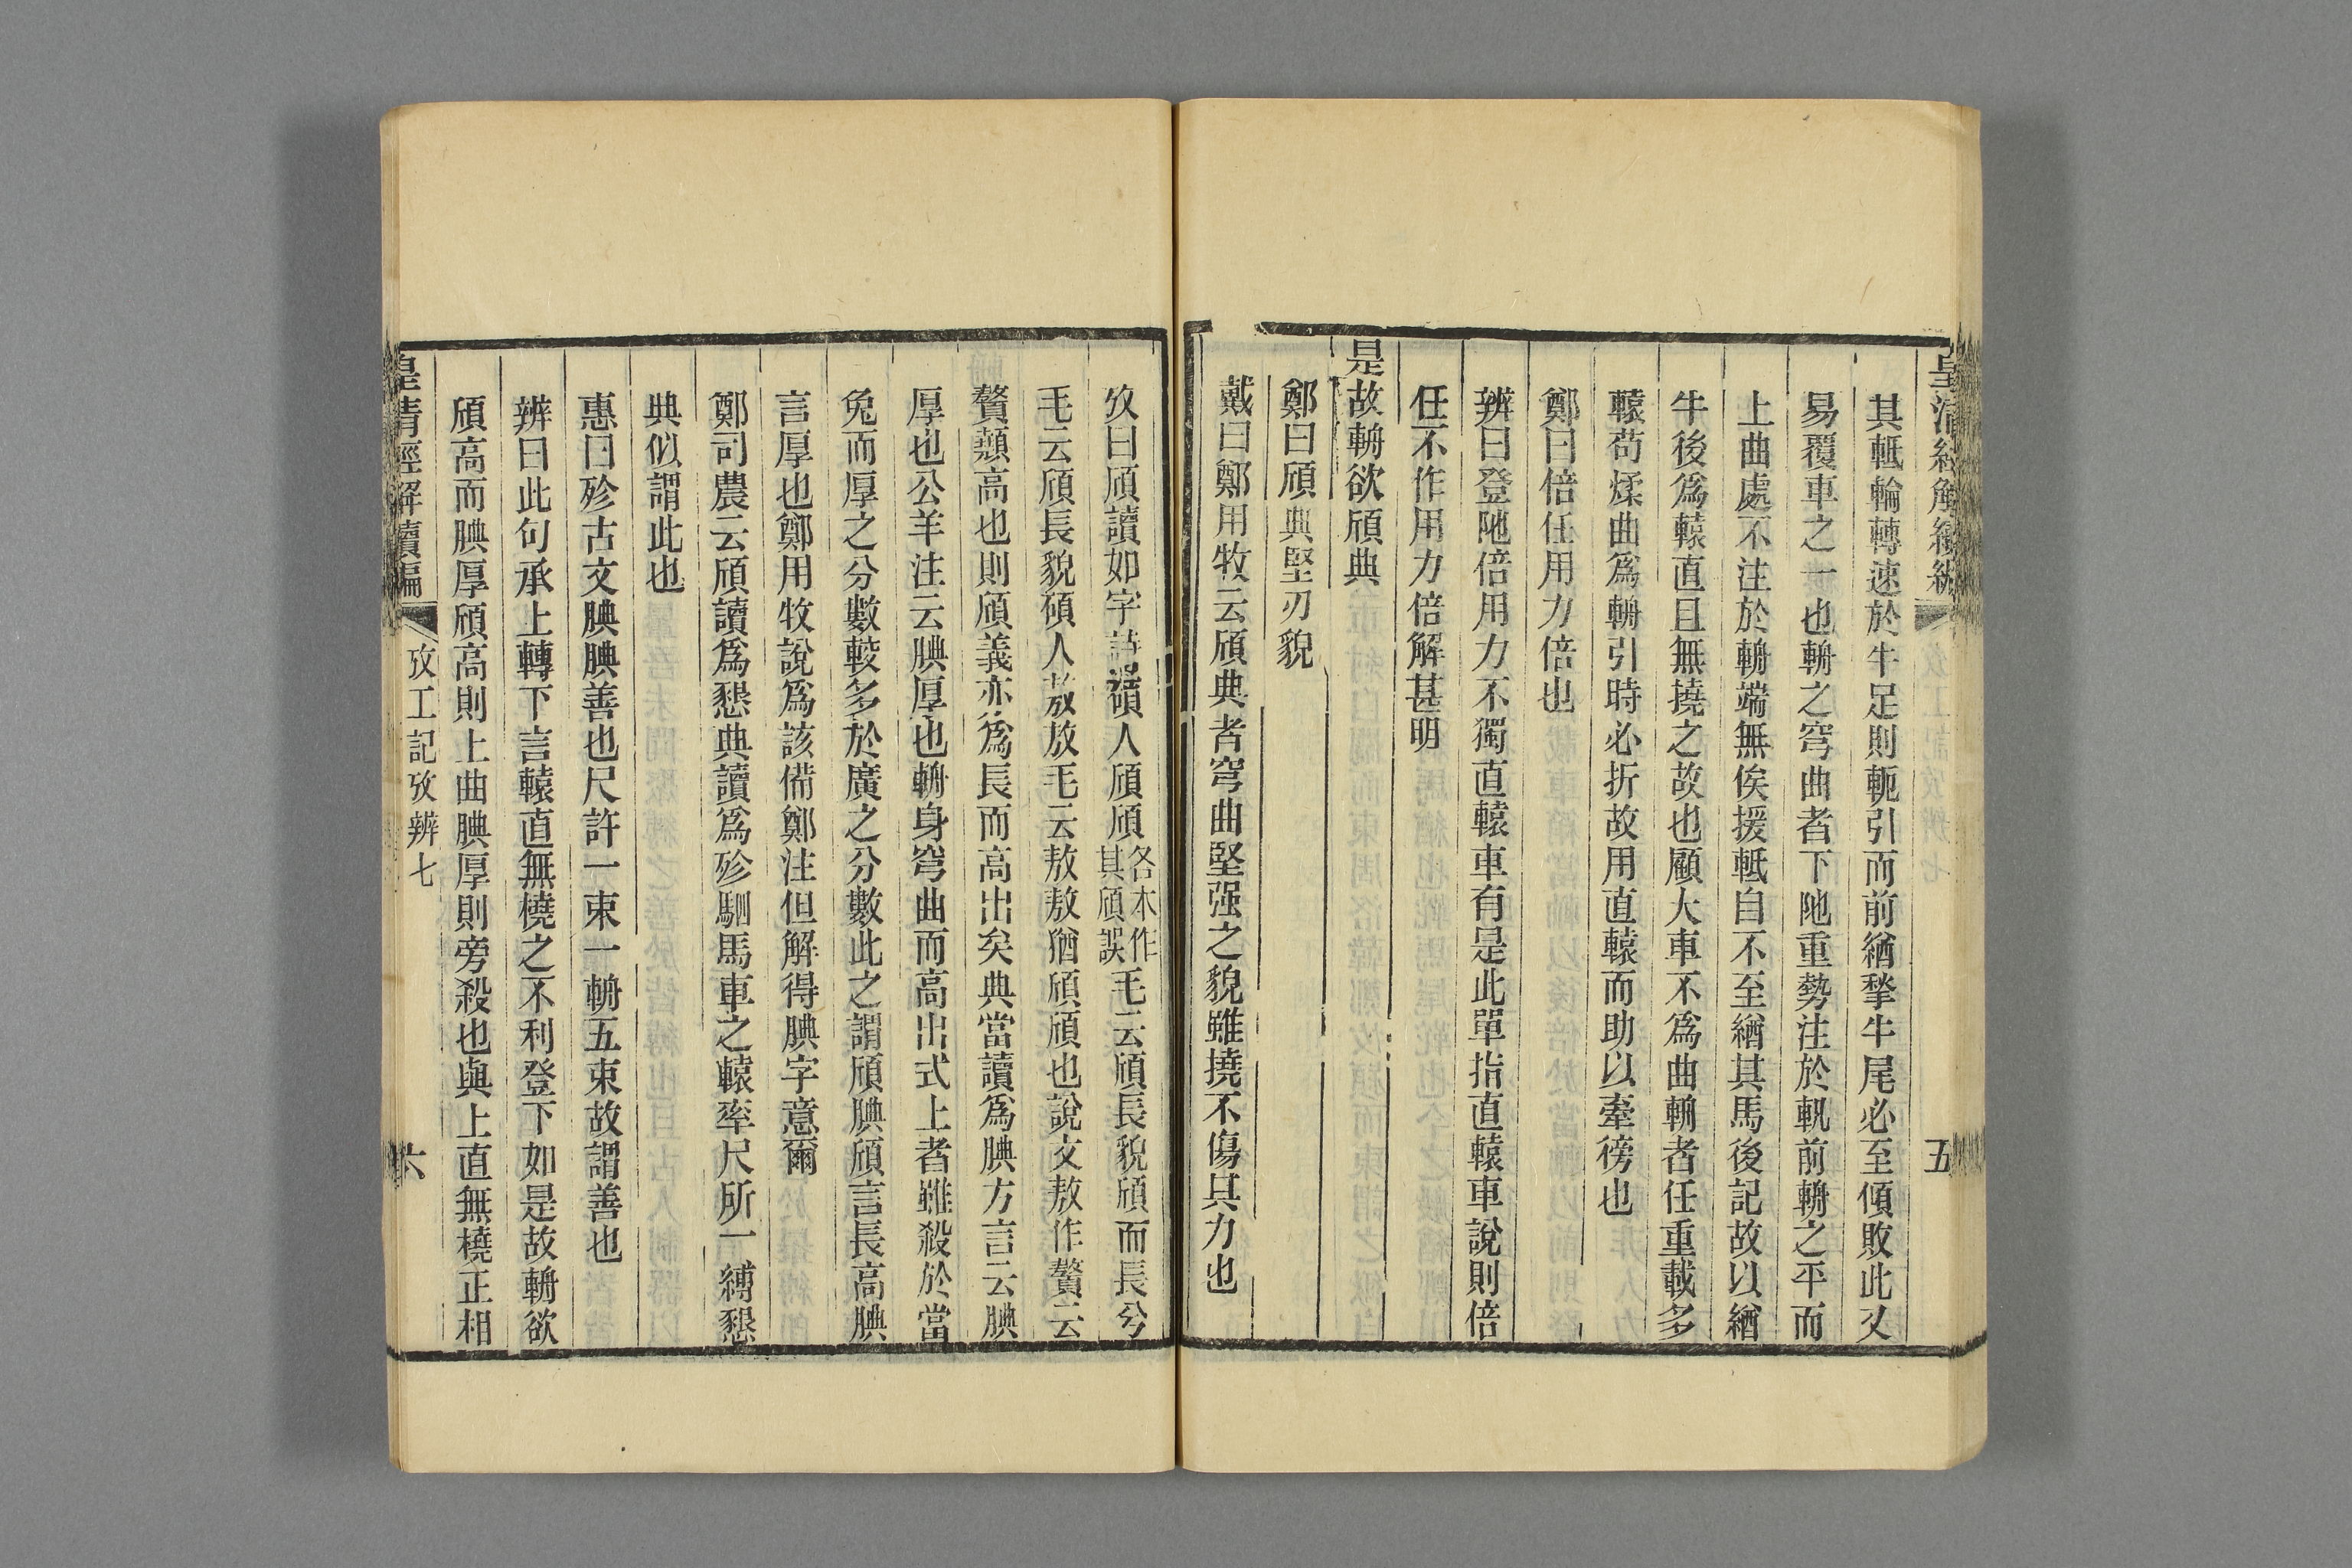 皇清經解續編
五
其軝輪轉速於牛足則軛引而前緧揫牛尾必至傾敗此又
易覆車之一也輈之穹曲者下阤重勢注於軓前輈之平而
上曲處不注於輈端無俟援軝自不至緧其馬後記故以緧
牛後爲轅直且無撓之故也顧大車不爲曲輈者任重載多
轅苟煣曲爲輈引時必折故用直轅而助以牽徬也
鄭曰倍任用力倍也
辨曰登阤倍用力不獨直轅車有是此單指直轅車說則倍
任不作用力倍解甚明
是故輈欲頎典
鄭曰頎典堅刃貌
戴曰鄭用牧云頎典者穹曲堅强之貌雖撓不傷其力也
攷曰頎讀如字詩碩人頎頎各本作其頎誤毛云頎長貌頎而長兮
毛云頎長貌碩人敖敖毛云敖敖猶頎頎也說文敖作贅云
贅顤高也則頎義亦爲長而高出矣典當讀爲腆方言云腆
厚也公羊注云腆厚也輈身穹曲而高出式上者雖殺於當
兔而厚之分數較多於廣之分數此之謂頎腆頎言長高腆
言厚也鄭用牧說爲該備鄭注但解得腆字意爾
鄭司農云頎讀爲懇典讀爲殄駟馬車之轅率尺所一縛懇
典似謂此也
惠曰殄古文腆腆善也尺許一束一輈五束故謂善也
辨曰此句承上轉下言轅直無橈之不利登下如是故輈欲
頎高而腆厚頎高則上曲腆厚則旁殺也與上直無橈正相
皇清經解續編
攷工記攷辨七
六